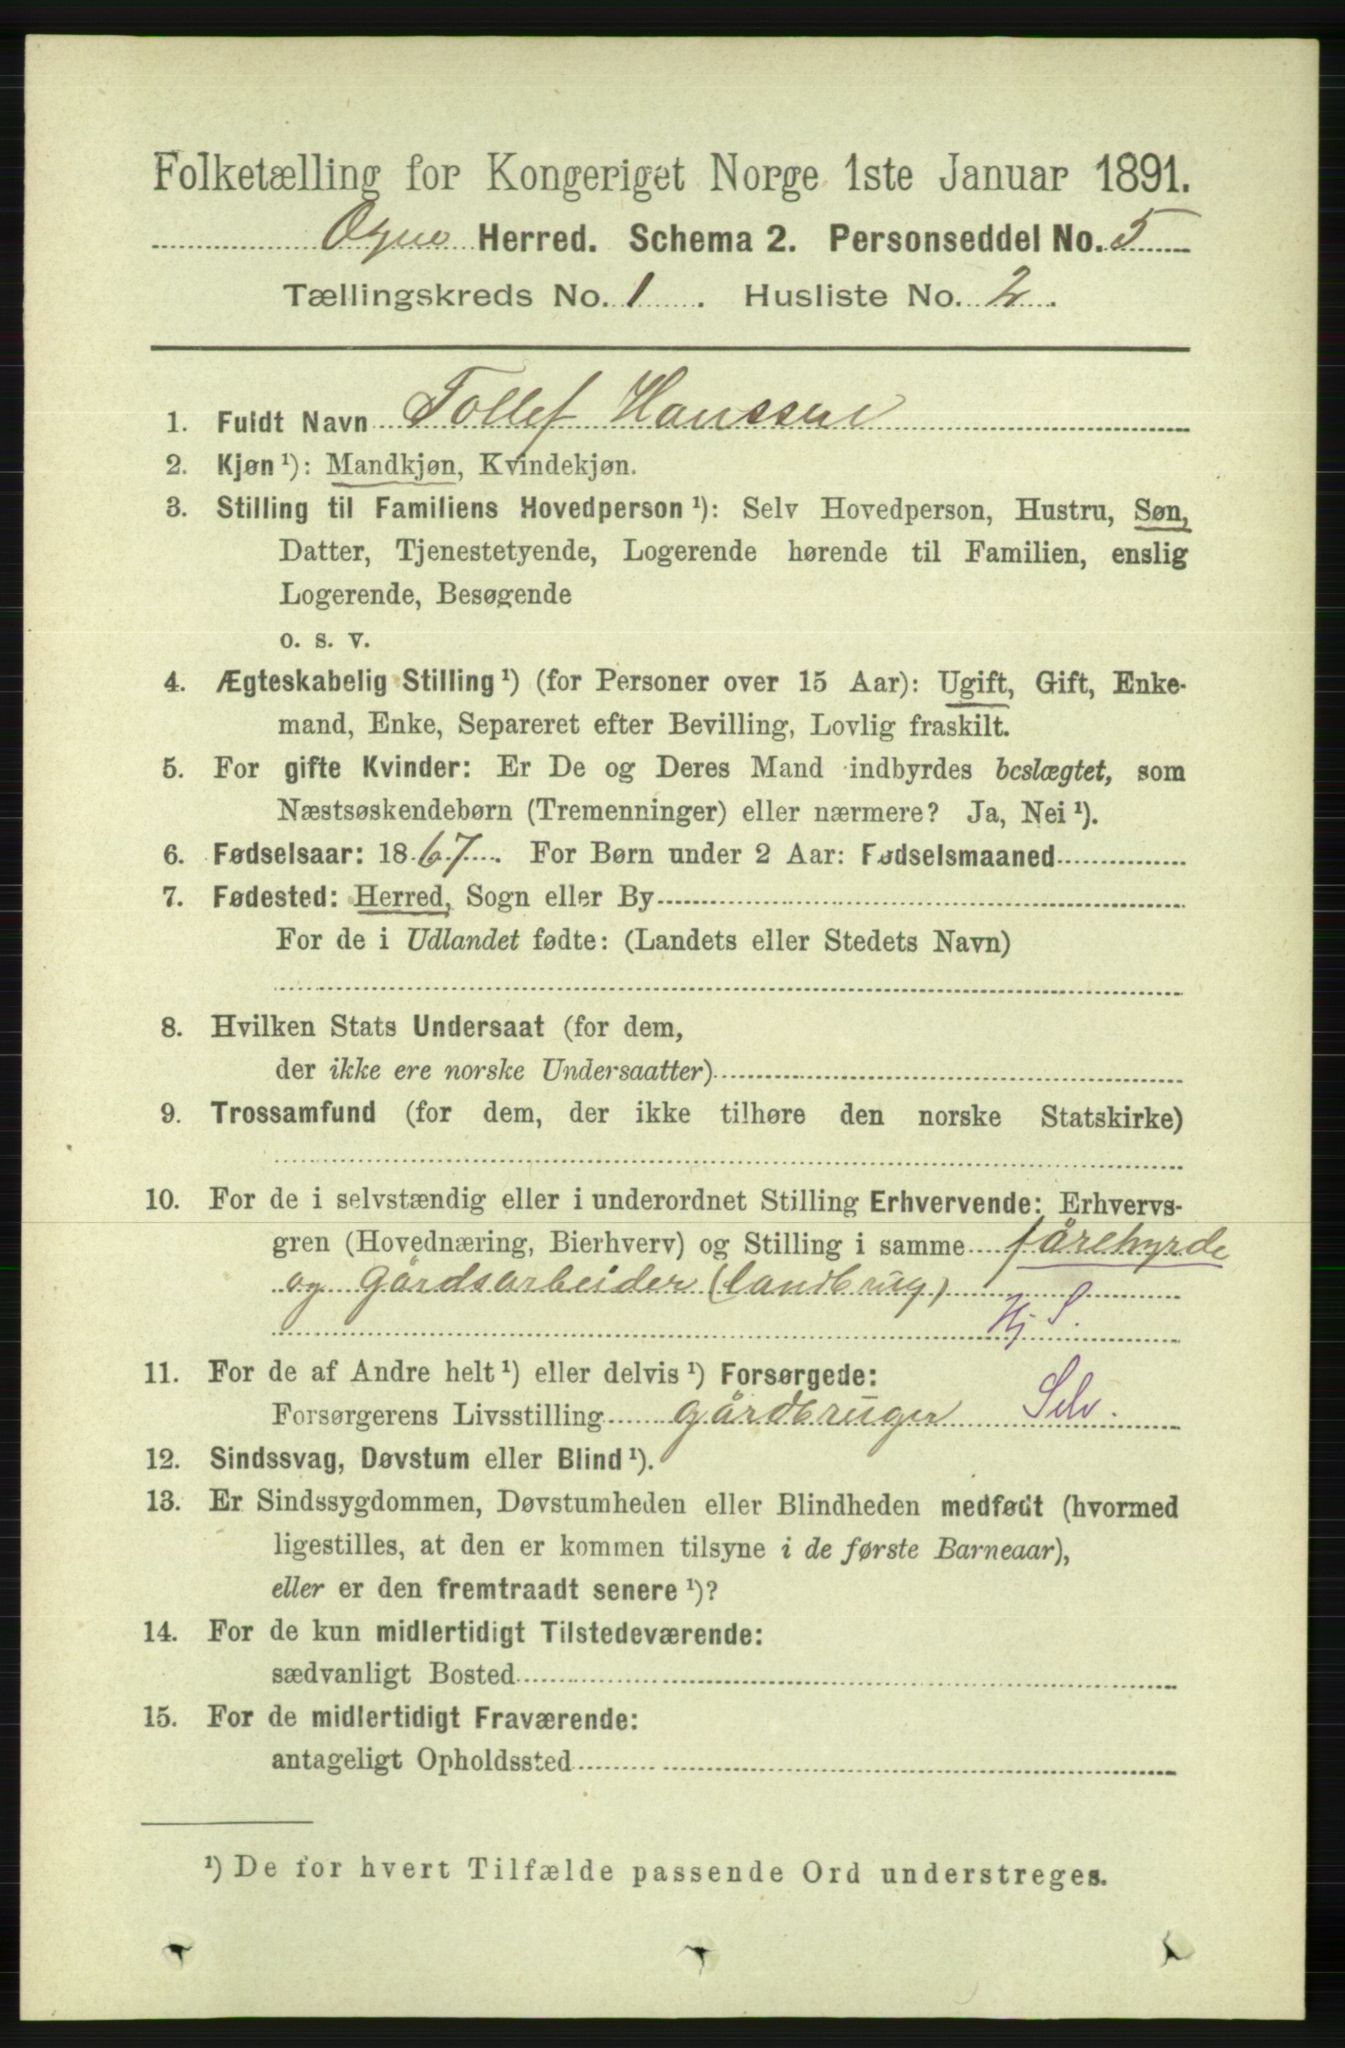 Folketælling for Kongeriget Norge 1ste Januar 1891.
Ogne Herred. Schema 2. Personseddel No. 5
Tællingskreds No. 1. Husliste No. 2.
1. Fuldt Navn Tollef Hanssen
2. Kjøn ¹): Mandkjøn, Kvindekjøn.
3. Stilling til Familiens Hovedperson ¹): Selv Hovedperson, Hustru, Søn,
Datter, Tjenestetyende, Logerende hørende til Familien, enslig
Logerende, Besøgende
o. s. v.
4. Ægteskabelig Stilling ¹) (for Personer over 15 Aar): Ugift, Gift, Enke-
mand, Enke, Separeret efter Bevilling, Lovlig fraskilt.
5. For gifte Kvinder: Er De og Deres Mand indbyrdes beslægtet, som
Næstsøskendebørn (Tremenninger) eller nærmere? Ja, Nei ¹).
6. Fødselsaar: 1867. For Børn under 2 Aar: Fødselsmaaned
7. Fødested: Herred, Sogn eller By
For de i Udlandet fødte: (Landets eller Stedets Navn)
8. Hvilken Stats Undersaat (for dem,
der ikke ere norske Undersaatter)
9. Trossamfund (for dem, der ikke tilhøre den norske Statskirke)
10. For de i selvstændig eller i underordnet Stilling Erhvervende: Erhvervs-
gren (Hovednæring, Bierhverv) og Stilling i samme fårehyrde
og gårdsarbeider (landbrug)
Hj. S.
11. For de af Andre helt ¹) eller delvis ¹) Forsørgede:
Forsørgerens Livsstilling gårdbruger Selv.
12. Sindssvag, Døvstum eller Blind ¹).
13. Er Sindssygdommen, Døvstumheden eller Blindheden medfødt (hvormed
ligestilles, at den er kommen tilsyne i de første Barneaar),
eller er den fremtraadt senere ¹)?
14. For de kun midlertidigt Tilstedeværende:
sædvanligt Bosted
15. For de midlertidigt Fraværende:
antageligt Opholdssted
¹) De for hvert Tilfælde passende Ord understreges.